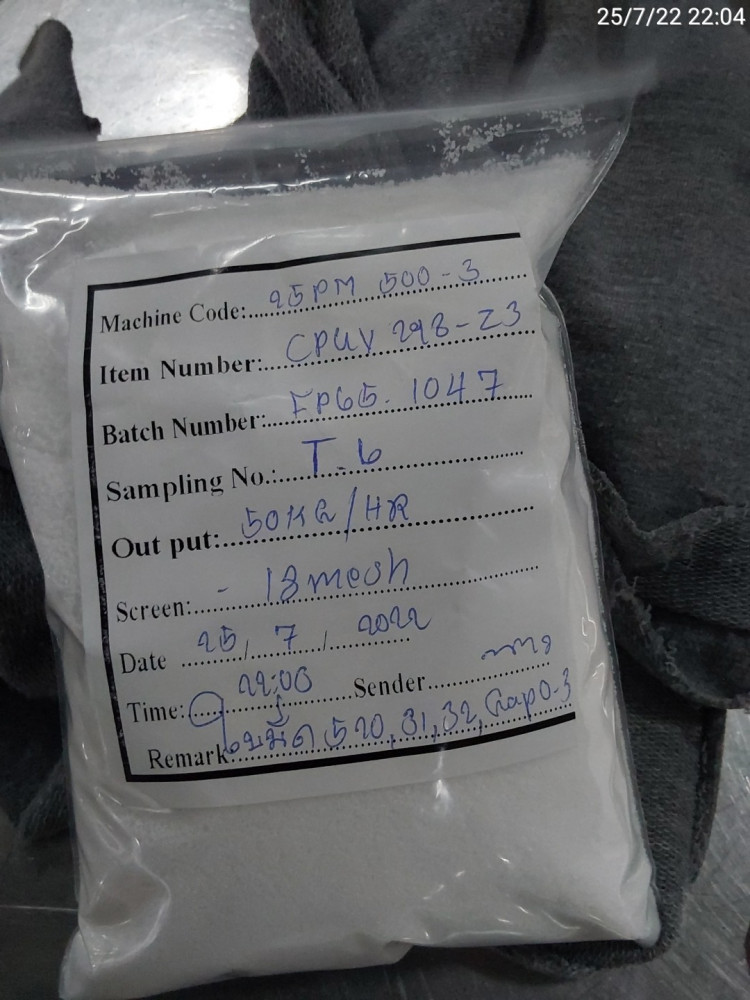 25/7/22 22:04
Machine Code: 25PM 500-3
Item Number: CPUV 298-Z3
Batch Number: FP65.1047
Sampling No.: T.6
Out put: 50KG/HR
Screen: - 18mesh
Date 25/7/2022
Time: 22:03 Sender
Remark: ใบมีด 520,31,32, Gap 0.3